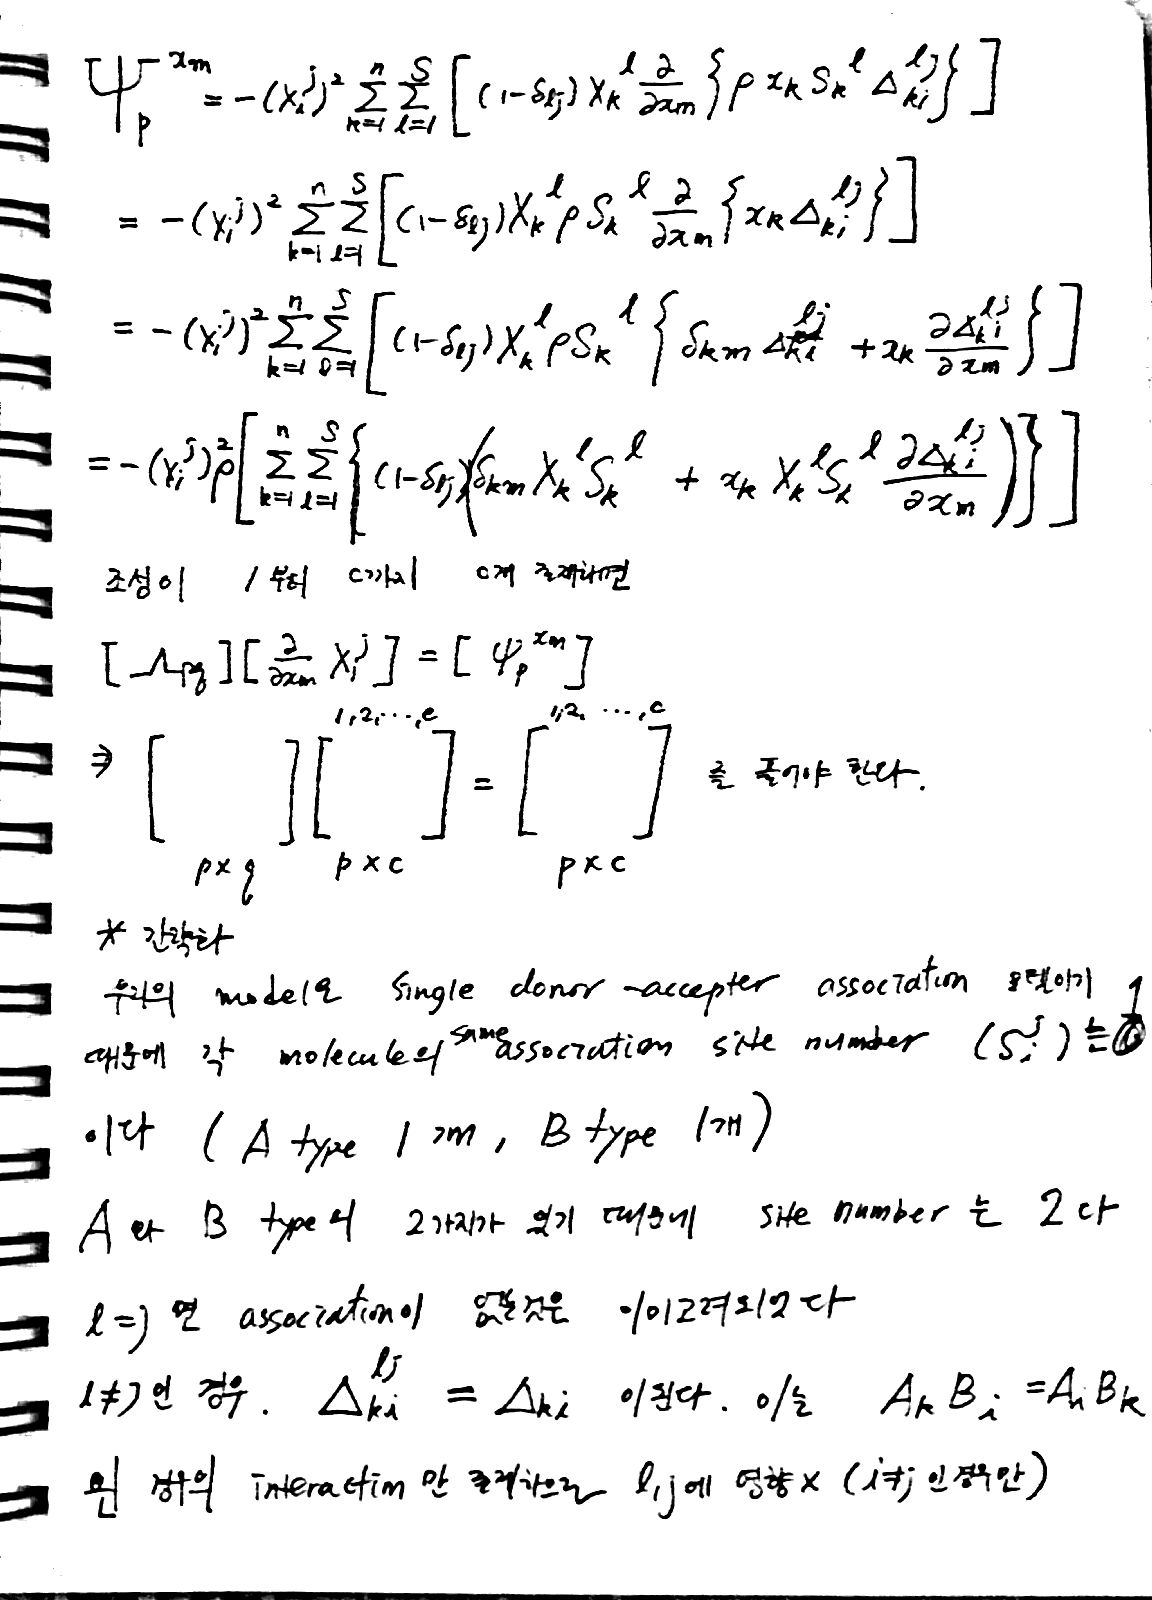 Ψ_p^{x_m} = -(X_i^j)^2 Σ_{k=1}^{n} Σ_{l=1}^{S} [ (1-δ_{lj}) X_k^l ∂/∂x_m { ρ x_k S_k^l Δ_{ki}^{lj} } ]
= -(X_i^j)^2 Σ_{k=1}^{n} Σ_{l=1}^{S} [ (1-δ_{lj}) X_k^l ρ S_k^l ∂/∂x_m { x_k Δ_{ki}^{lj} } ]
= -(X_i^j)^2 Σ_{k=1}^{n} Σ_{l=1}^{S} [ (1-δ_{lj}) X_k^l ρ S_k^l { δ_{km} Δ_{ki}^{lj} + x_k ∂Δ_{ki}^{lj}/∂x_m } ]
= -(X_i^j)^2 ρ [ Σ_{k=1}^{n} Σ_{l=1}^{S} { (1-δ_{lj}) ( δ_{km} X_k^l S_k^l + x_k X_k^l S_k^l ∂Δ_{ki}^{lj}/∂x_m ) } ]
조성이 1부터 c까지 c개 존재하면
[Λ_{pq}] [∂/∂x_m X_i^j] = [Ψ_p^{x_m}]
1,2,…,c 1,2, …,c
⇒ [ ] [ ] = [ ] 를 풀어야 한다.
p×q p×c p×c
* 간략화
우리의 model은 single donor-accepter association 모델이기
때문에 각 molecule의 same association site number (S_i^j)는 1
이다 (A type 1개, B type 1개)
A와 B type의 2가지가 있기 때문에 site number는 2다
l=j면 association이 없을것은 이미고려되었다
l≠j인 경우. Δ_{ki}^{lj} = Δ_{ki} 이 된다. 이는 A_k B_i = A_i B_k
인 경우의 interaction만 존재하므로 l,j에 영향× (i≠j인경우만)